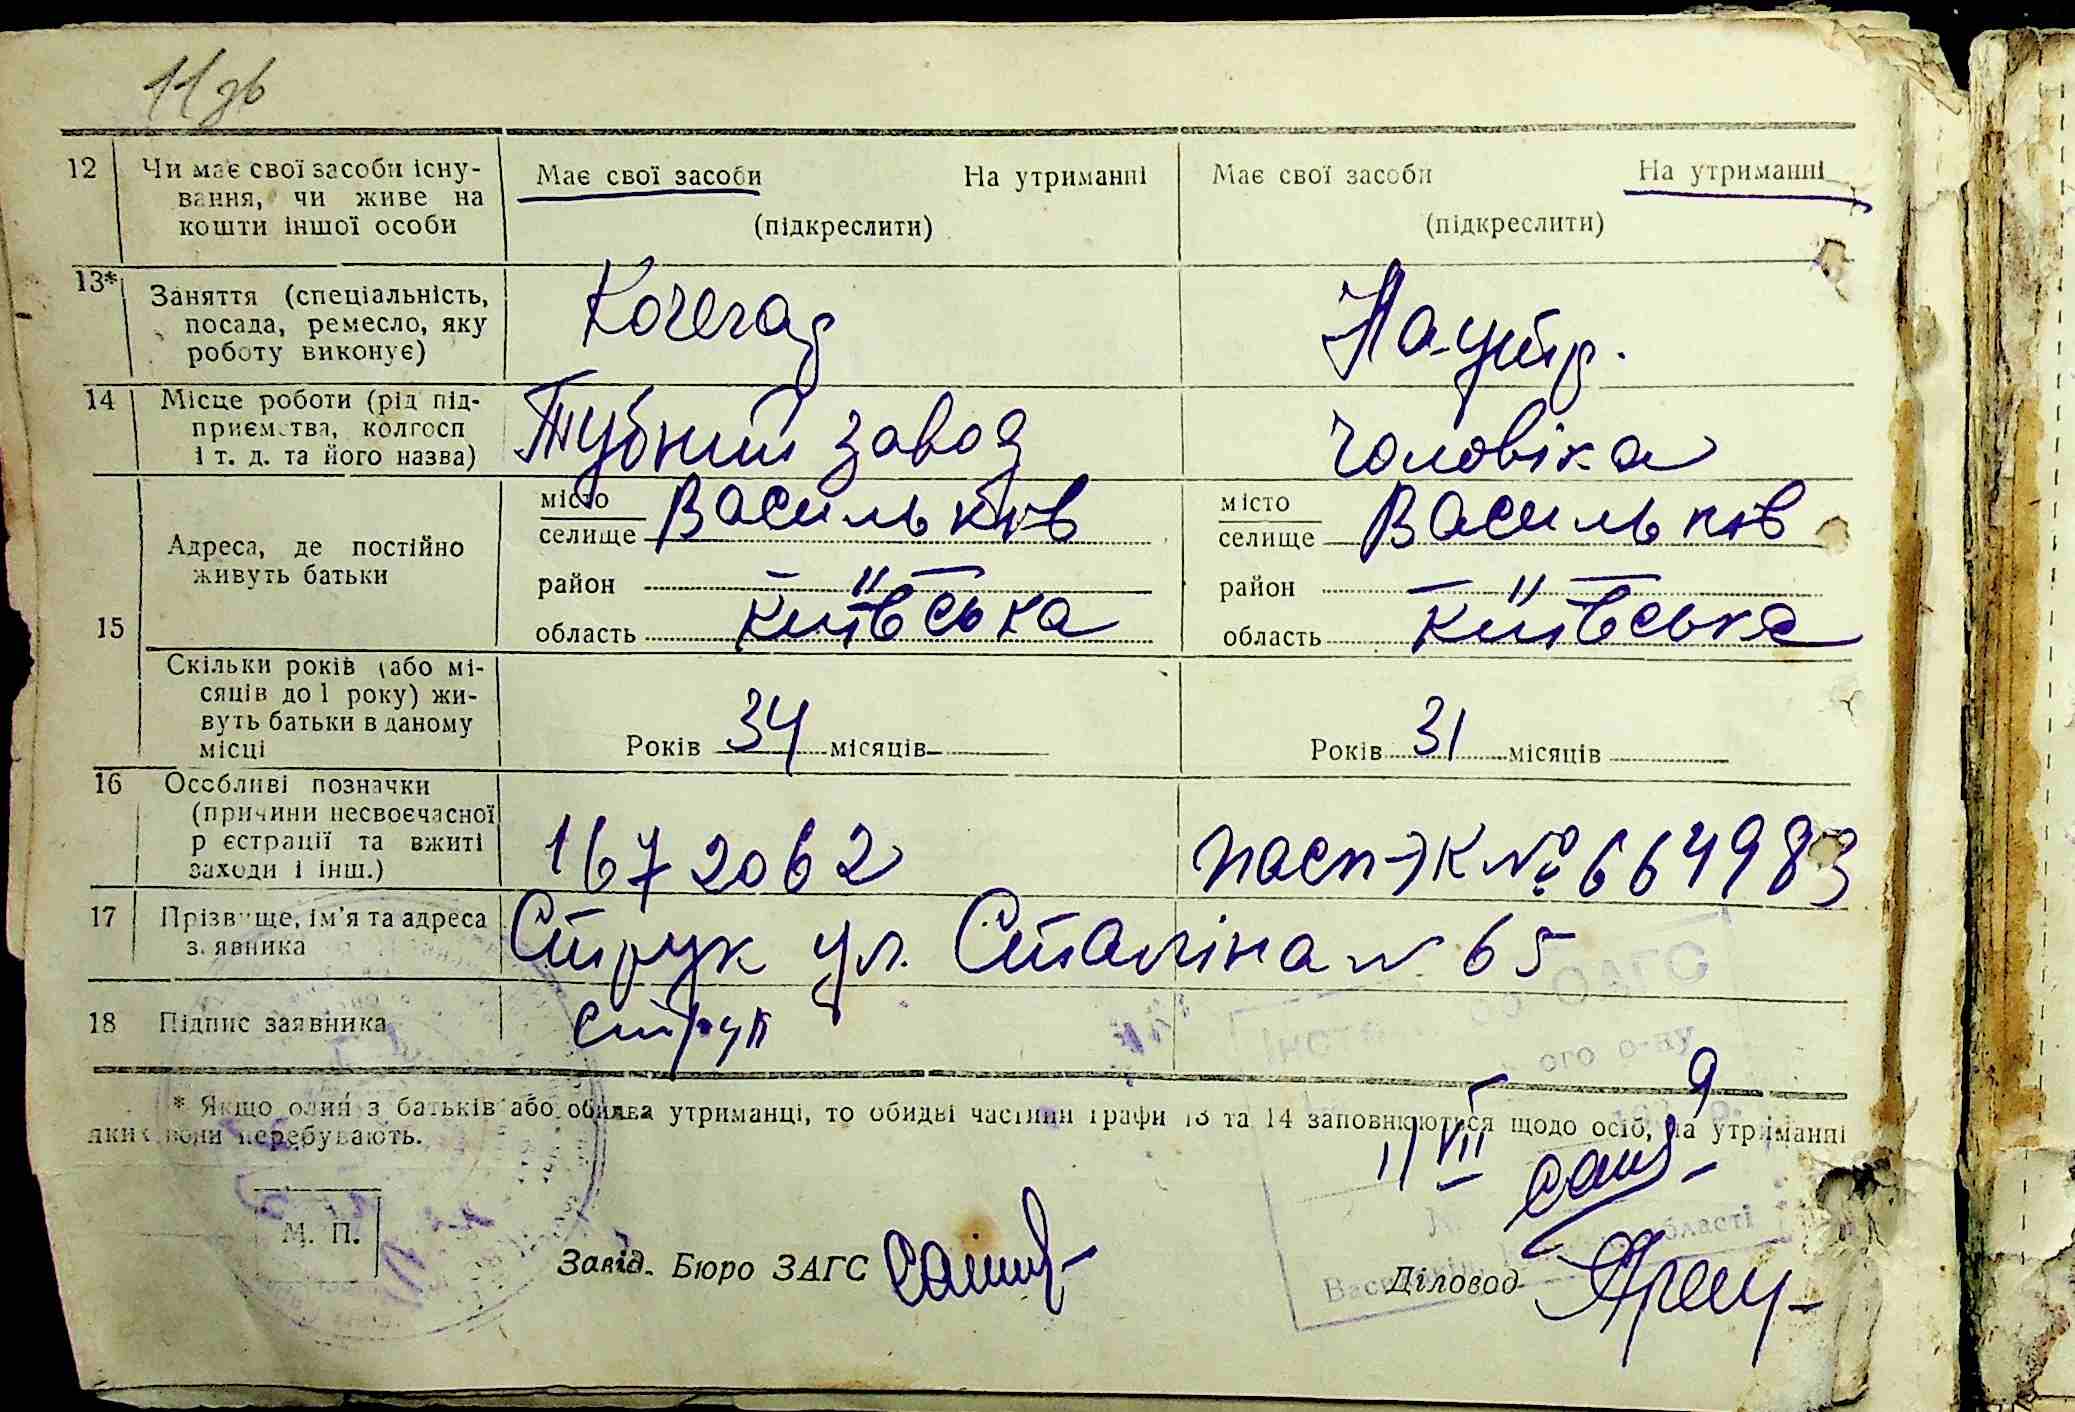 11зв
12 Чи має свої засоби існу- Має свої засоби На утриманні Має свої засоби На утриманні
вання, чи живе на
кошти іншої особи (підкреслити) (підкреслити)
13* Заняття (спеціальність, Кочегар На утр.
посада, ремесло, яку
роботу виконує)
14 Місце роботи (рід під- Тубний завод чоловіка
приємства, колгосп
і т. д. та його назва)
15 Адреса, де постійно живуть батьки
місто Васильків місто Васильків
селище селище
район — " — район — " —
область Київська область Київська
Скільки років (або мі-
сяців до 1 року) жи-
вуть батьки в даному
місці Років 34 місяців Років 31 місяців
16 Особливі позначки
(причини несвоєчасної
реєстрації та вжиті 1672062 пасп ЭК № 664983
заходи і інш.)
17 Прізвище, ім'я та адреса Струк ул. Сталіна № 65
заявника
18 Підпис заявника Струк
Інст ОАГС
ого р-ну
* Якщо один з батьків або обидва утриманці, то обидві частини графи 13 та 14 заповнюються щодо осіб, на утриманні
яких вони перебувають.
11 VII
області
М. П.
Завід. Бюро ЗАГС Діловод